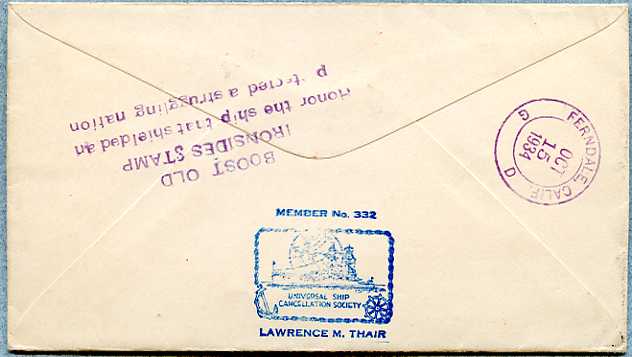 BOOST OLD
IRONSIDES STAMP
Honor the ship that shielded an
a struggling nation
FERNDALE, CALIF.
OCT
15
1934
G D
MEMBER No. 332
UNIVERSAL SHIP
CANCELLATION SOCIETY
LAWRENCE M. THAIR